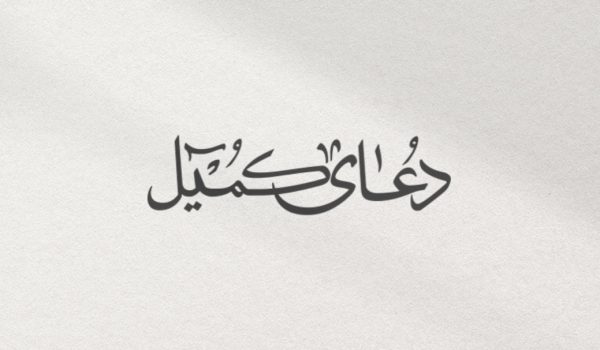 دُعای کُمیل